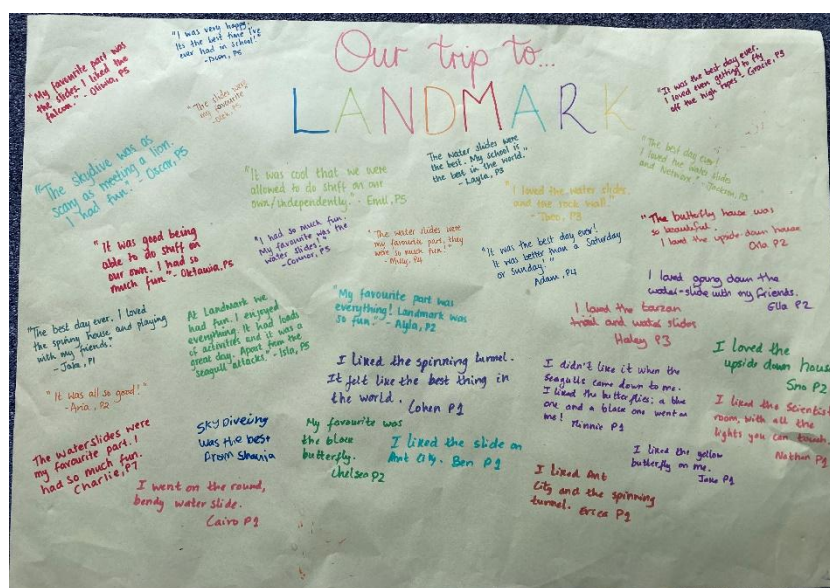 Our trip to...
LANDMARK
"My favourite part was
the slides. I liked the
falcon." - Oliwia, P5
"I was very happy.
Its the best time I've
ever had in school."
P5
"The slides were
my favourite"
"It was the best day ever.
I loved even getting to fly
off the high ropes" - Gracie, P3
"The skydive was as
scary as meeting a lion.
I had fun." - Oscar, P5
"It was cool that we were
allowed to do stuff on our
own/independently. - Emil, P5
The water slides were
the best. My school is
the best in the world."
- Layla, P5
"I loved the water slides
and the rock wall."
- Theo, P3
"The best day ever!
I loved the water slides
and - Jackson, P3
"It was good being
able to do stuff on
our own. I had so
much fun." - Oktawia, P5
"I had so much fun.
My favourite was the
water slides!"
- Connor, P5
"The water slides were
my favourite part, they
were so much fun!"
P4
"It was the best day ever!
It was better than a Saturday
or Sunday!"
Adam, P4
"The butterfly house was
so beautiful.
I loved the upside down house
Orla P2
I loved going down the
water-slide with my friends.
Ella P2
"The best day ever. I loved
the spinny house and playing
with my friends."
- Jake, P1
At Landmark we
had fun. I enjoyed
everything. It had loads
of activities and it was a
great day. Apart from the
seagull attacks." - Isla, P5
"My favourite part was
everything! Landmark was
so fun." - Ayla, P2
I loved the tarzan
trail and water slides
Haley P3
I loved the
upside down house
P2
"It was all so good!"
- Aria, P2
I liked the spinning tunnel.
It felt like the best thing in
the world.
Cohen P1
I didn't like it when the
seagulls came down to me.
I liked the butterflies: a blue
one and a black one went on
me! Minnie P1
I liked the Scientist
room, with all the
lights you can touch.
Nathan P1
The waterslides were
my favourite part. I
had so much fun.
Charlie, P7
SKYDiveing
was the best
From Shania
My favourite was
the black
butterfly.
Chelsea P2
I liked the slide on
Ant City. Ben P1
I liked the yellow
butterfly on me.
P1
I went on the round,
bendy water slide.
Cairo P1
I liked Ant
City and the spinning
tunnel. P1